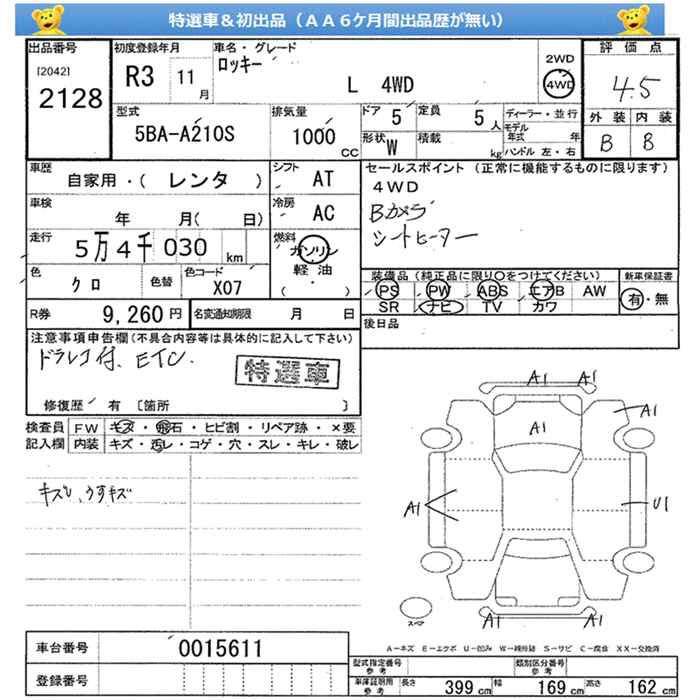 特選車＆初出品（ＡＡ６ケ月間出品歴が無い）
出品番号
[2042]
2128
初度登録年月
R3 11 月
車名・グレード
ロッキー
L 4WD
2WD
4WD
評価点
4.5
外装 内装
B B
型式
5BA-A210S
排気量
1000 CC
ドア 5
定員 5 人
形状 W
積載 kg
ディーラー・並行
モデル年式 年
ハンドル 左・右
車歴
自家用・( レンタ )
シフト AT
車検
年 月( 日)
冷房 AC
走行
5万4千030 km
燃料
ガソリン
軽油
( ・ )
色
クロ
色替
色コード
X07
R券 9,260 円
名変通知期限 月 日
セールスポイント (正常に機能するものに限ります)
4WD
Bカメラ
シートヒーター
装備品(純正品に限り〇をつけてください)
PS PW ABS エアB AW
SR ナビ TV カワ
新車保証書
有・無
後日品
注意事項申告欄(不具合内容等は具体的に記入して下さい)
ドラレコ付、ETC.
特選車
修復歴 ・ 有 〔箇所 〕
検査員記入欄
FW キズ・飛石・ヒビ割・リペア跡・×要
内装 キズ・汚レ・コゲ・穴・スレ・キレ・破レ
キズ、うすキズ
A1 A1
A1
A1
A1
U1
A1 A1
スペア
A－キズ E－エクボ U－凹み W－補修跡 S－サビ C－腐食 XX－交換済
車台番号 0015611
登録番号
型式指定番号 参考
類別区分番号 参考
車庫証明用 参考
長さ 399 cm 幅 169 cm 高さ 162 cm